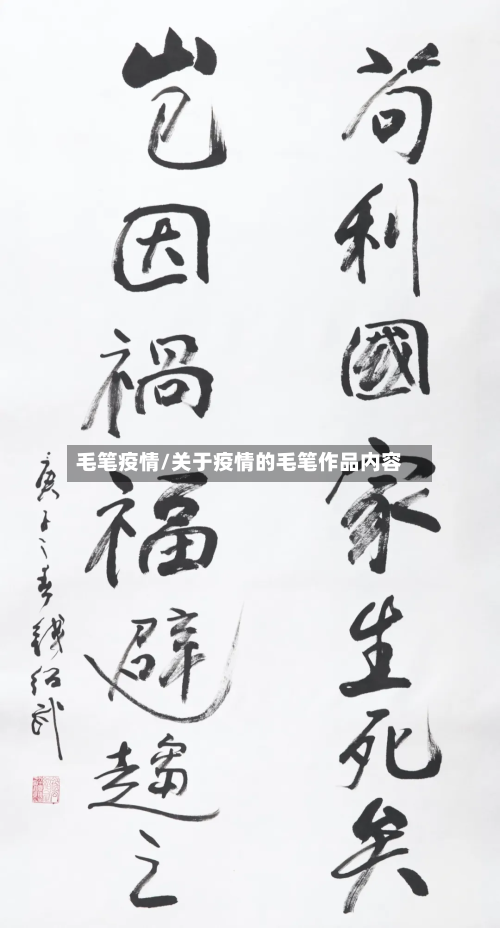 苟利國家生死矣
岂因禍福避趨之
庚子之春錢紹武
毛笔疫情/关于疫情的毛笔作品内容